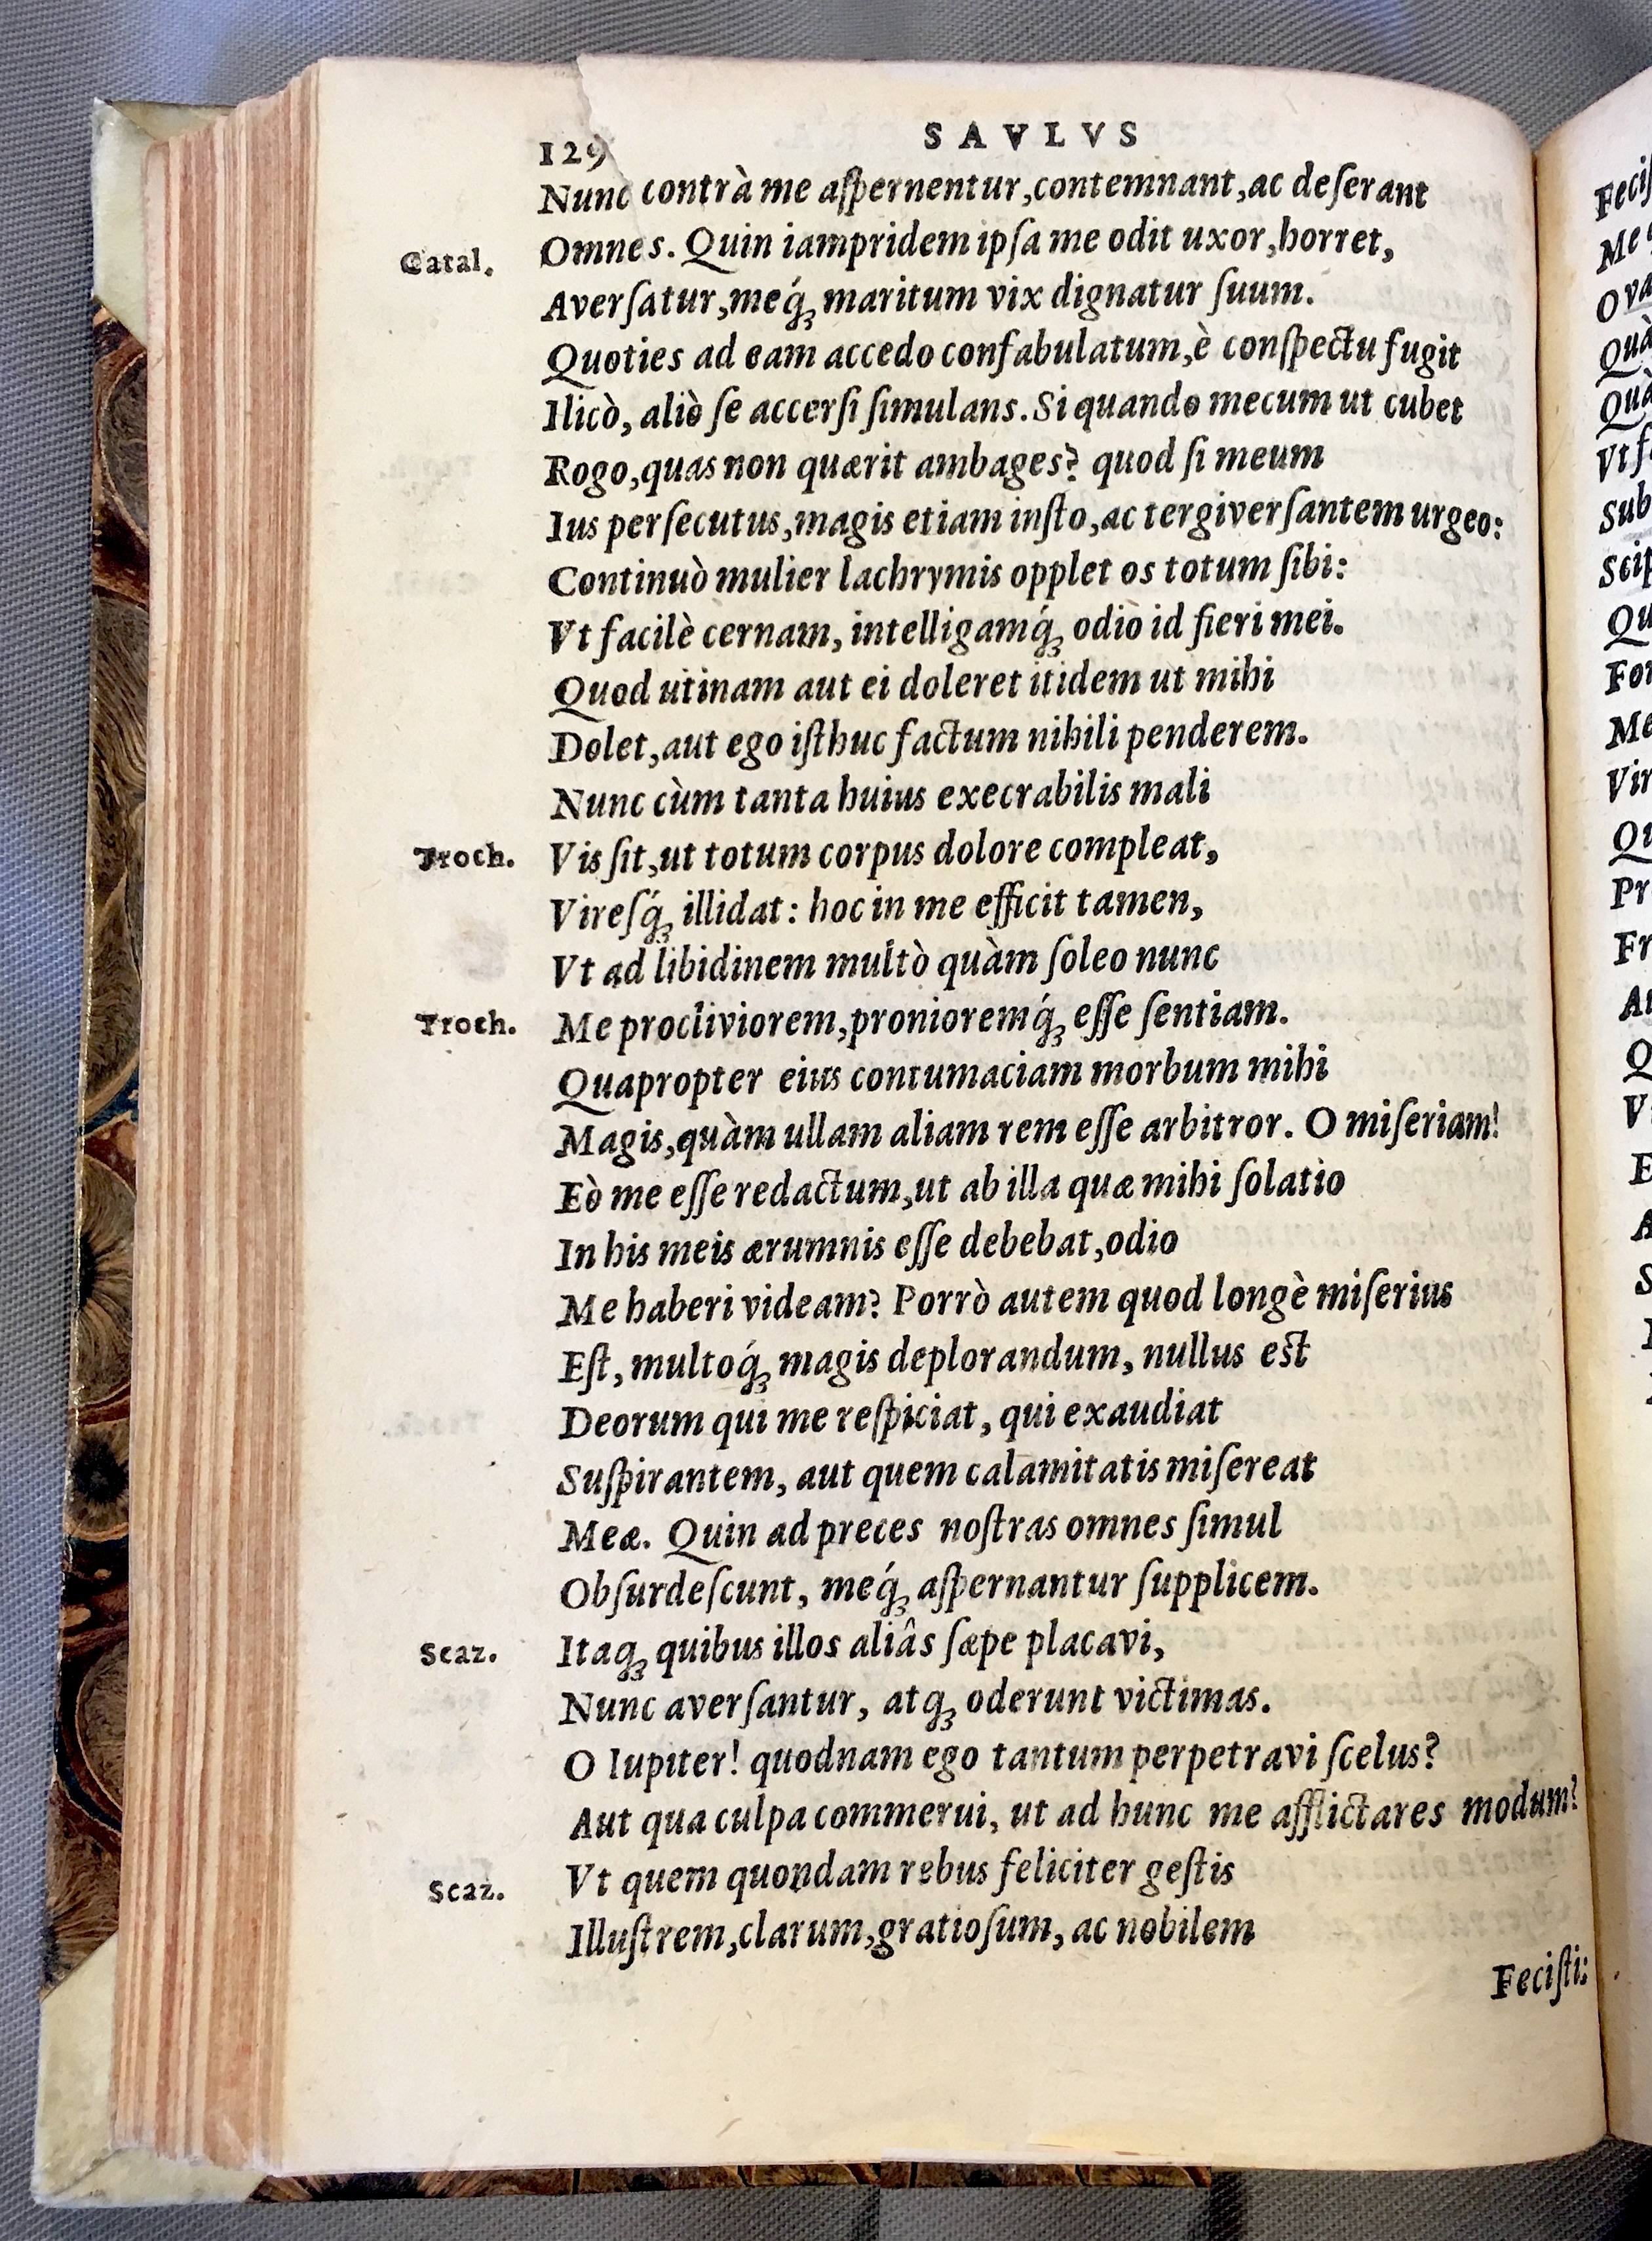 129 SAVLVS
Nunc contrà me aſpernentur, contemnant, ac deſerant
Catal. Omnes. Quin iampridem ipſa me odit uxor, horret,
Averſatur, meq́ꝫ maritum vix dignatur ſuum.
Quoties ad eam accedo confabulatum, è conſpectu fugit
Ilicò, aliò ſe accerſi ſimulans. Si quando mecum ut cubet
Rogo, quas non quærit ambages? quod ſi meum
Ius perſecutus, magis etiam inſto, ac tergiverſantem urgeo:
Continuò mulier lachrymis opplet os totum ſibi:
Vt facilè cernam, intelligamq́ꝫ odio id fieri mei.
Quod utinam aut ei doleret itidem ut mihi
Dolet, aut ego iſthuc factum nihili penderem.
Nunc cùm tanta huius execrabilis mali
Troch. Vis ſit, ut totum corpus dolore compleat,
Vireſq́ꝫ illidat: hoc in me efficit tamen,
Vt ad libidinem multò quàm ſoleo nunc
Troch. Me procliviorem, pronioremq́ꝫ eſſe ſentiam.
Quapropter eius contumaciam morbum mihi
Magis, quàm ullam aliam rem eſſe arbitror. O miſeriam!
Eò me eſſe redactum, ut ab illa quæ mihi ſolatio
In his meis ærumnis eſſe debebat, odio
Me haberi videam? Porrò autem quod longè miſerius
Eſt, multoq́ꝫ magis deplorandum, nullus eſt
Deorum qui me reſpiciat, qui exaudiat
Suſpirantem, aut quem calamitatis miſereat
Meæ. Quin ad preces noſtras omnes ſimul
Obſurdeſcunt, meq́ꝫ aſpernantur ſupplicem.
Scaz. Itaqꝫ quibus illos aliâs ſæpe placavi,
Nunc averſantur, atqꝫ oderunt victimas.
O Iupiter! quodnam ego tantum perpetravi ſcelus?
Aut qua culpa commerui, ut ad hunc me afflictares modum?
Scaz. Vt quem quondam rebus feliciter geſtis
Illuſtrem, clarum, gratioſum, ac nobilem
Feciſti: